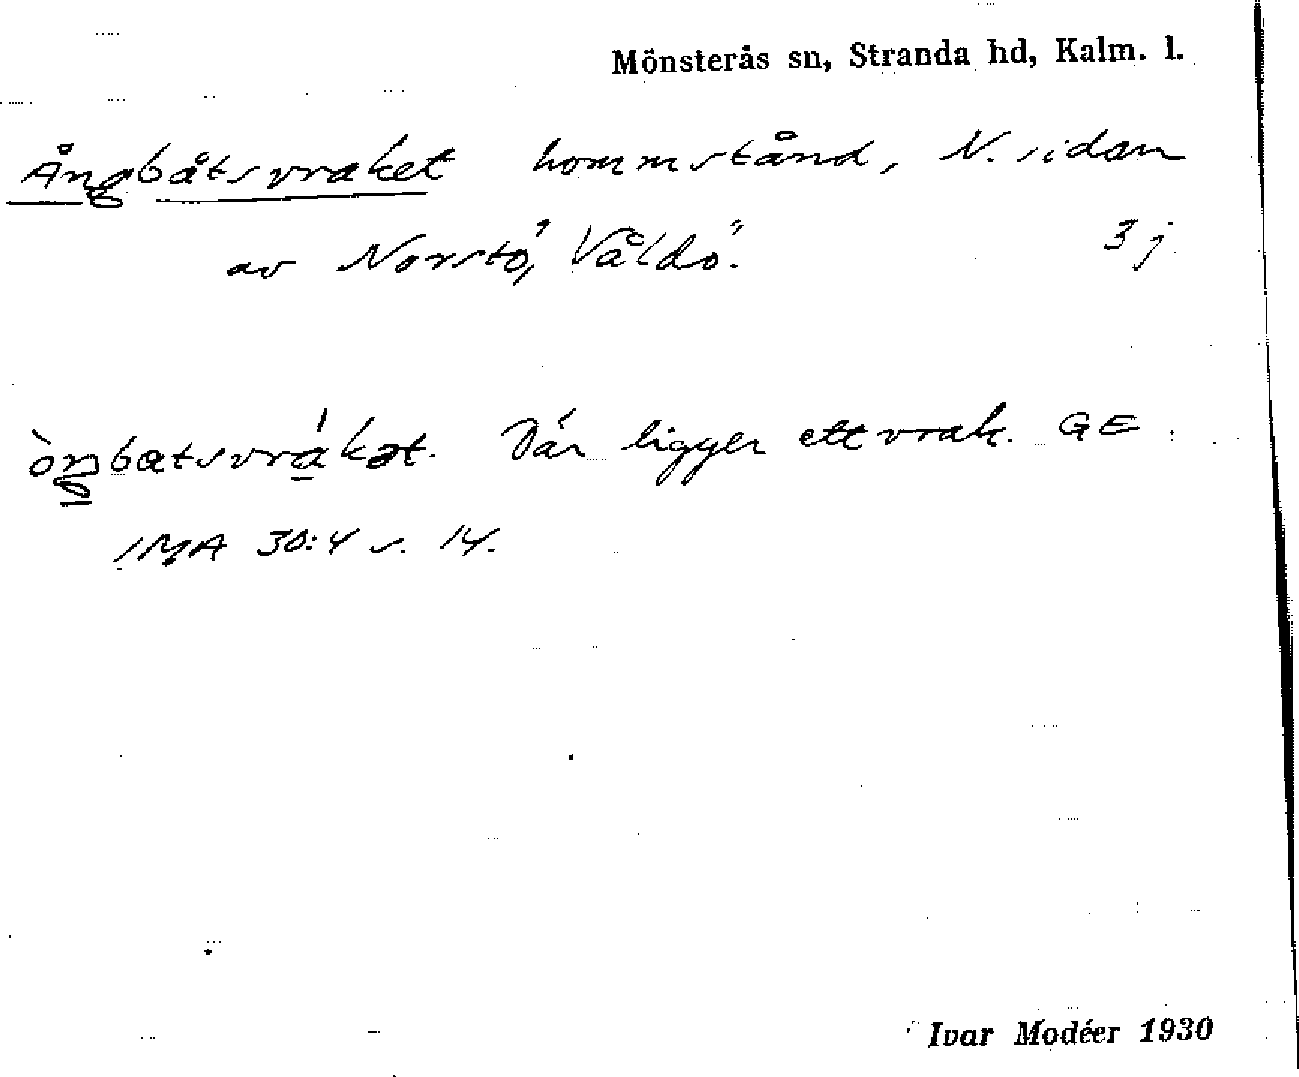 Mönsterås sn, Stranda hd, Kalm. l.
Ångbåtsvraket hommstånd, N. sidan
av Norstö, Våldö. 3 j
òŋbatsvrákət. Där ligger ett vrak. GE.
IMA 30:4 s. 14.
Ivar Modéer 1930